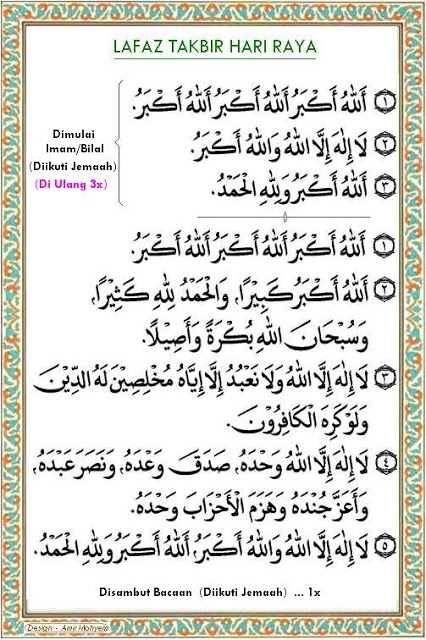 LAFAZ TAKBIR HARI RAYA
Dimulai
Imam/Bilal
(Diikuti Jemaah)
(Di Ulang 3x)
١ اَللهُ أَكْبَرُ اَللهُ أَكْبَرُ اَللهُ أَكْبَرُ.
٢ لَا إِلٰهَ إِلَّا اللهُ وَاللهُ أَكْبَرُ.
٣ اَللهُ أَكْبَرُ وَلِلّٰهِ الْحَمْدُ.
١ اَللهُ أَكْبَرُ اَللهُ أَكْبَرُ اَللهُ أَكْبَرُ.
٢ اَللهُ أَكْبَرُ كَبِيْرًا, وَالْحَمْدُ لِلّٰهِ كَثِيْرًا,
وَسُبْحَانَ اللهِ بُكْرَةً وَأَصِيْلًا.
٣ لَا إِلٰهَ إِلَّا اللهُ وَلَا نَعْبُدُ إِلَّا إِيَّاهُ مُخْلِصِيْنَ لَهُ الدِّيْنَ
وَلَوْ كَرِهَ الْكَافِرُوْنَ.
٤ لَا إِلٰهَ إِلَّا اللهُ وَحْدَهُ, صَدَقَ وَعْدَهُ, وَنَصَرَ عَبْدَهُ,
وَأَعَزَّ جُنْدَهُ وَهَزَمَ الْأَحْزَابَ وَحْدَهُ.
٥ لَا إِلٰهَ إِلَّا اللهُ وَاللهُ أَكْبَرُ, اَللهُ أَكْبَرُ وَلِلّٰهِ الْحَمْدُ.
Disambut Bacaan (Diikuti Jemaah) ... 1x
Design - Amir Mohyem